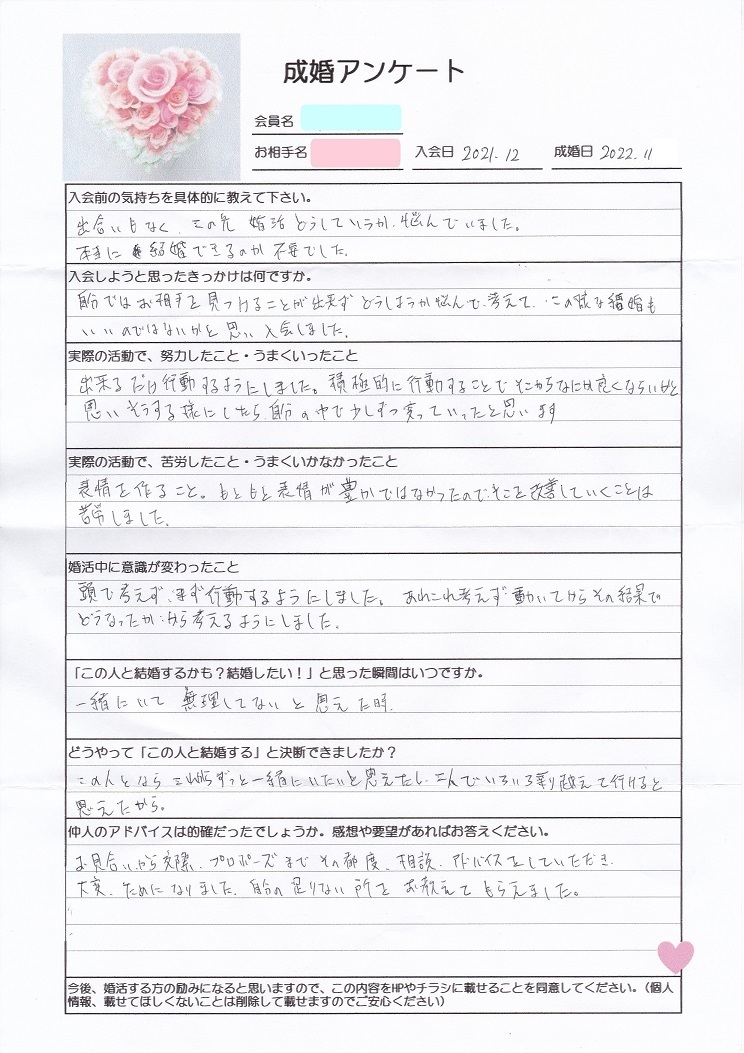 成婚アンケート
会員名
お相手名 入会日 2021.12 成婚日 2022.11
入会前の気持ちを具体的に教えて下さい。
出会いもなく、この先 婚活どうしていうか、悩んでいました。
本当に結婚できるのか不安でした。
入会しようと思ったきっかけは何ですか。
自分ではお相手を見つけることが出来ず どうしようか悩んで、考えて、この様な結婚も
いいのではないかと思い 入会しました。
実際の活動で、努力したこと・うまくいったこと
出来るだけ行動するようにしました。積極的に行動することで そこからなにか良くならいかと
思い そうする様にしたら、自分の中で少しずつ変っていったと思います
実際の活動で、苦労したこと・うまくいかなかったこと
表情を作ること。もともと表情が豊かではなかったのでそこを改善していくことは
苦労しました。
婚活中に意識が変わったこと
頭で考えず、まず行動するようにしました。 あれこれ考えず動いてからその結果で
どうなったか、から考えるようにしました。
「この人と結婚するかも？結婚したい！」と思った瞬間はいつですか。
一緒にいて 無理してないと思えた時.
どうやって「この人と結婚する」と決断できましたか？
この人となら これからずっと一緒にいたいと思えたし、二人でいろいろ乗り越えて行けると
思えたから。
仲人のアドバイスは的確だったでしょうか。感想や要望があればお答えください。
お見合いから交際、プロポーズまで その都度、相談、アドバイスをしていただき、
大変、ためになりました。自分の足りない所を お教えてもらえました。
今後、婚活する方の励みになると思いますので、この内容をHPやチラシに載せることを同意してください。（個人
情報、載せてほしくないことは削除して載せますのでご安心ください）